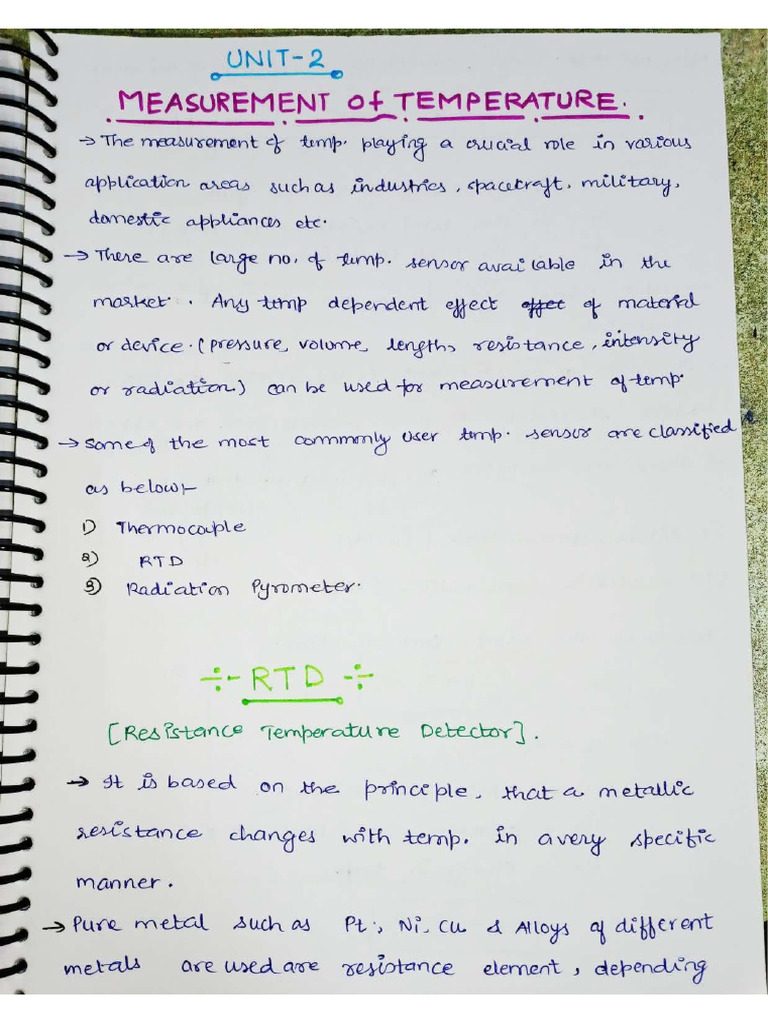 UNIT-2
MEASUREMENT Of TEMPERATURE.
→ The measurement of temp. playing a crucial role in various
application areas such as industries, spacecraft, military,
domestic appliances etc.
→ There are large no. of temp. sensor available in the
market. Any temp dependent effect effec of material
or device. (pressure, volume, length, resistance, intensity
or radiation.) can be used for measurement of temp.
→ Some of the most commonly user temp. sensor are classified
as below:-
1) Thermocouple
2) RTD
3) Radiation Pyrometer.
÷- RTD -÷
[Resistance Temperature Detector].
→ It is based on the principle, that a metallic
resistance changes with temp. in a very specific
manner.
→ Pure metal such as Pt., Ni, Cu & Alloys of different
metals are used are resistance element, depending